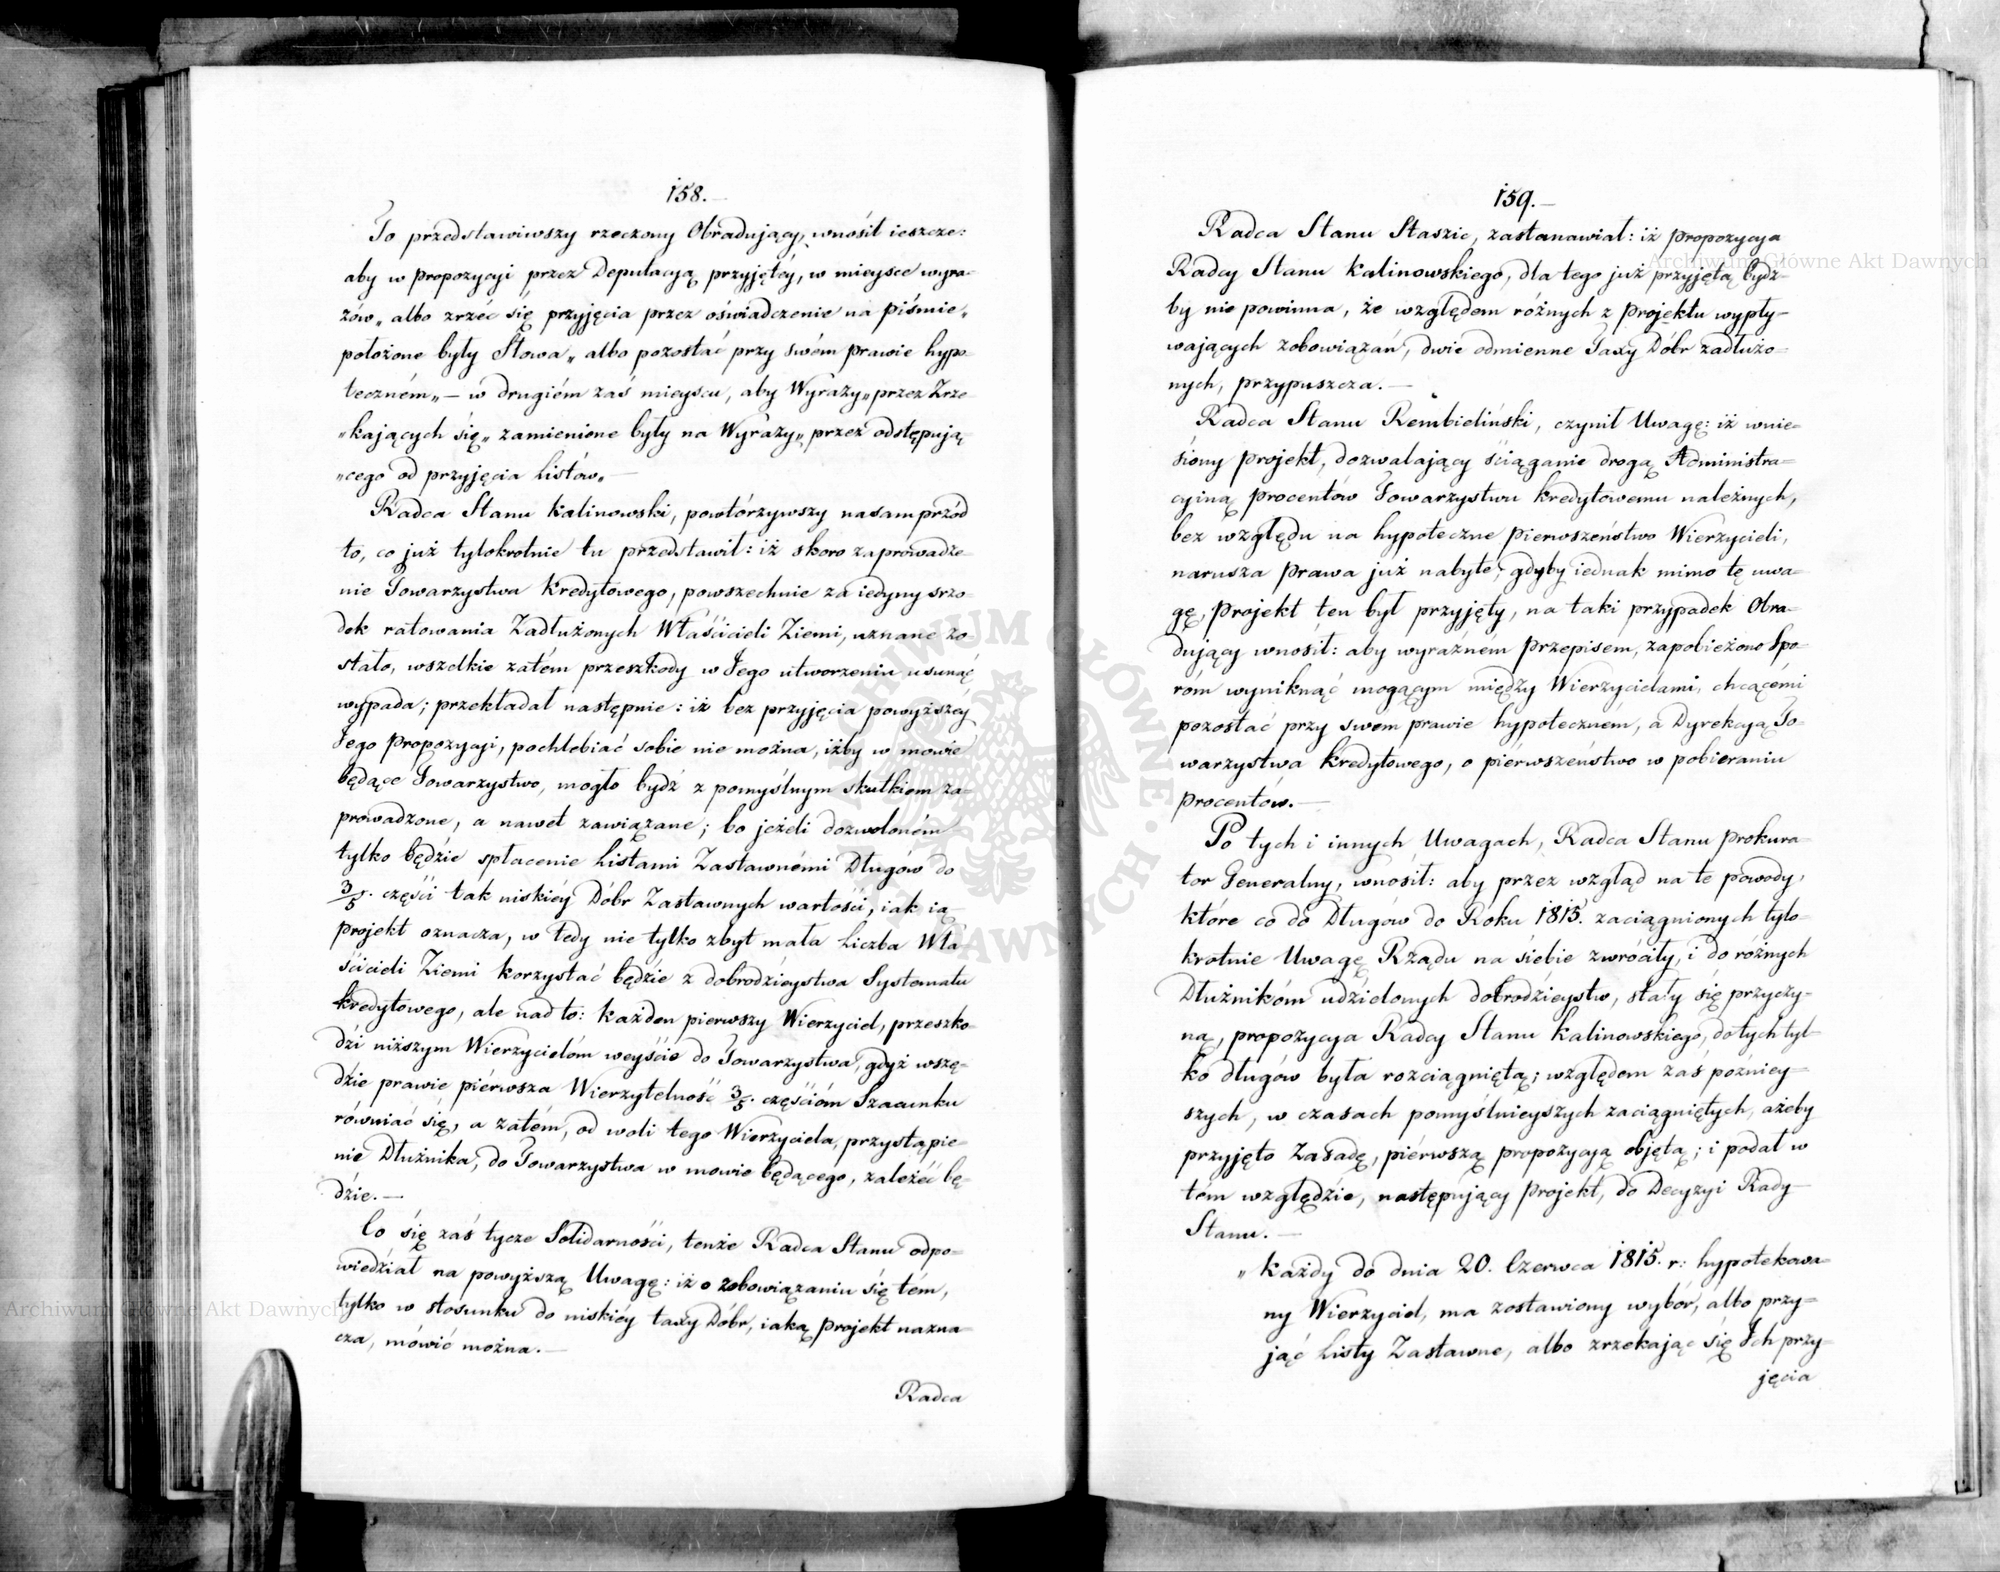 158.
To przedstawiwszy rzeczony Obradujący, wnosił ieszcze:
aby w propozycyi przez Deputacyą przyjętéy, w mieysce wyra-
zów „ albo zrzéc się przyjęcia przez oświadczenie na piśmie „
położone były Słowa „ albo pozostać przy swém prawie hypo-
teczném „ — w drugiém zaś mieyscu, aby Wyrazy „ przez Zrze
„kających się „ zamienione były na Wyrazy „ przez odstępują
„cego od przyjęcia listów „ —
Radca Stanu Kalinowski, powtórzywszy nasamprzód
to, co już tylokrotnie tu przedstawił: iż skoro zaprowadze-
nie Towarzystwa Kredytowego, powszechnie za iedyny śrzo-
dek ratowania Zadłużonych Właścicieli Ziemi, uznane zo-
stało, wszelkie zatém przeszkody w Jego utworzeniu usunąć
wypada; przekładał następnie: iż bez przyjęcia powyższéy
Jego Propozycyi, pochlebiać sobie nie można, iżby w mowie
będące Towarzystwo, mogło bydź z pomyślnym skutkiem za-
prowadzone, a nawet zawiązane; bo jeżeli dozwoloném
tylko będzie spłacenie Listami Zastawnémi Długów do
3/5. części tak niskiéy Dóbr Zastawnych wartości, iak ią
projekt oznacza, w tedy nie tylko zbyt mała Liczba Wła-
ścicieli Ziemi korzystać będzie z dobrodzieystwa Systematu
kredytowego, ale nadto: każden pierwszy Wierzyciel, przeszko-
dzi niższym Wierzycielóm weyście do Towarzystwa, gdyż wszę-
dzie prawie piérwsza Wierzytelność 3/5. częścióm Szacunku
równiać się, a zatém, od woli tego Wierzyciela, przystąpie-
nie Dłużnika, do Towarzystwa w mowie będącego, zależéć bę-
dzie. —
Co się zaś tycze Solidarności, tenże Radca Stanu odpo-
wiedział na powyższą Uwagę: iż o zobowiązaniu się tém,
tylko w stosunku do niskiéy taxy Dóbr, iaką projekt nazna-
cza, mówić można. —
Radca
159. —
Radca Stanu Staszic, zastanawiał: iż propozycya
Radcy Stanu Kalinowskiego, dla tego już przyjętą bydź-
by nie powinna, że względem różnych z projektu wypły-
wających zobowiązań, dwie odmienne Taxy Dóbr zadłużo-
nych, przypuszcza. —
Radca Stanu Rembieliński, czynił Uwagę: iż wnie-
siony projekt, dozwalający ściąganie drogą Administra-
cyiną procentów Towarzystwu kredytowemu należnych,
bez względu na hypoteczne pierwszeństwo Wierzycieli,
narusza prawa już nabyte; gdyby iednak mimo tę uwa-
gę, projekt ten był przyjęty, na taki przypadek Obra-
dujący wnosił: aby wyraźnem przepisem, zapobieżono Spo-
róm wyniknąć mogącym między Wierzycielami, chcącémi
pozostać przy swem prawie hypotecznem, a Dyrekcyą To-
warzystwa kredytowego, o piérwszeństwo w pobieraniu
procentów. —
Po tych i innych Uwagach, Radca Stanu Prokura-
tor Generalny, wnosił: aby przez wzgląd na te powody,
które co do Długów do Roku 1815. zaciągnionych tylo-
krotnie Uwagę Rządu na siebie zwróciły, i do różnych
Dłużnikóm udzielonych dobrodzieystw, stały się przyczy-
ną, propozycya Radcy Stanu Kalinowskiego, do tych tyl-
ko długów była rozciągniętą; względem zaś późniey-
szych, w czasach pomyślnieyszych zaciągniętych, ażeby
przyjęto Zasadę, piérwszą propozycyą objętą; i podał w
tém względzie, następujący projekt, do Decyzyi Rady
Stanu. —
„ Każdy do dnia 20. Czerwca 1815. r: hypotekowa-
ny Wierzyciel, ma zostawiony wybór, albo przy-
jąć Listy Zastawne, albo zrzekając się Ich przy-
jęcia
Archiwum Główne Akt Dawnych
Archiwum Główne Akt Dawnych
ARCHIWUM GŁÓWNE AKT DAWNYCH